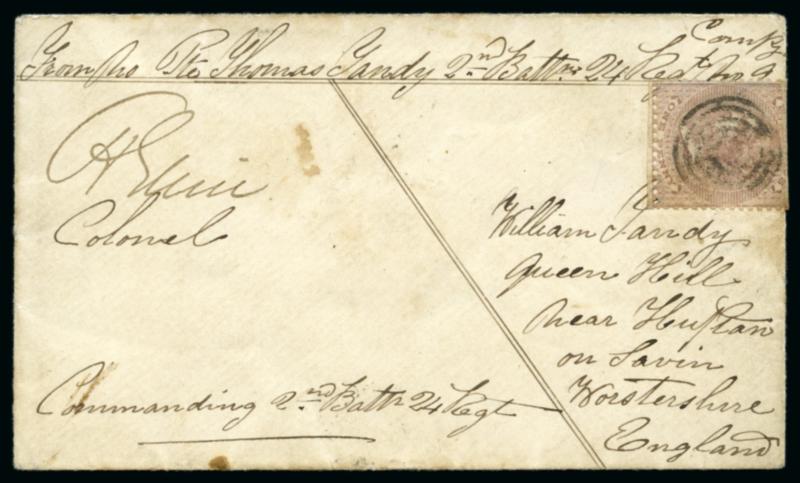 Comp.y
From No Pte Thomas Tandy 2nd Battn 24 Regt No 9
Colonel
Commanding 2nd Battn 24 Regt
William Tandy
Queen Hill
Near Hupton
on Savin
Worstershire
England